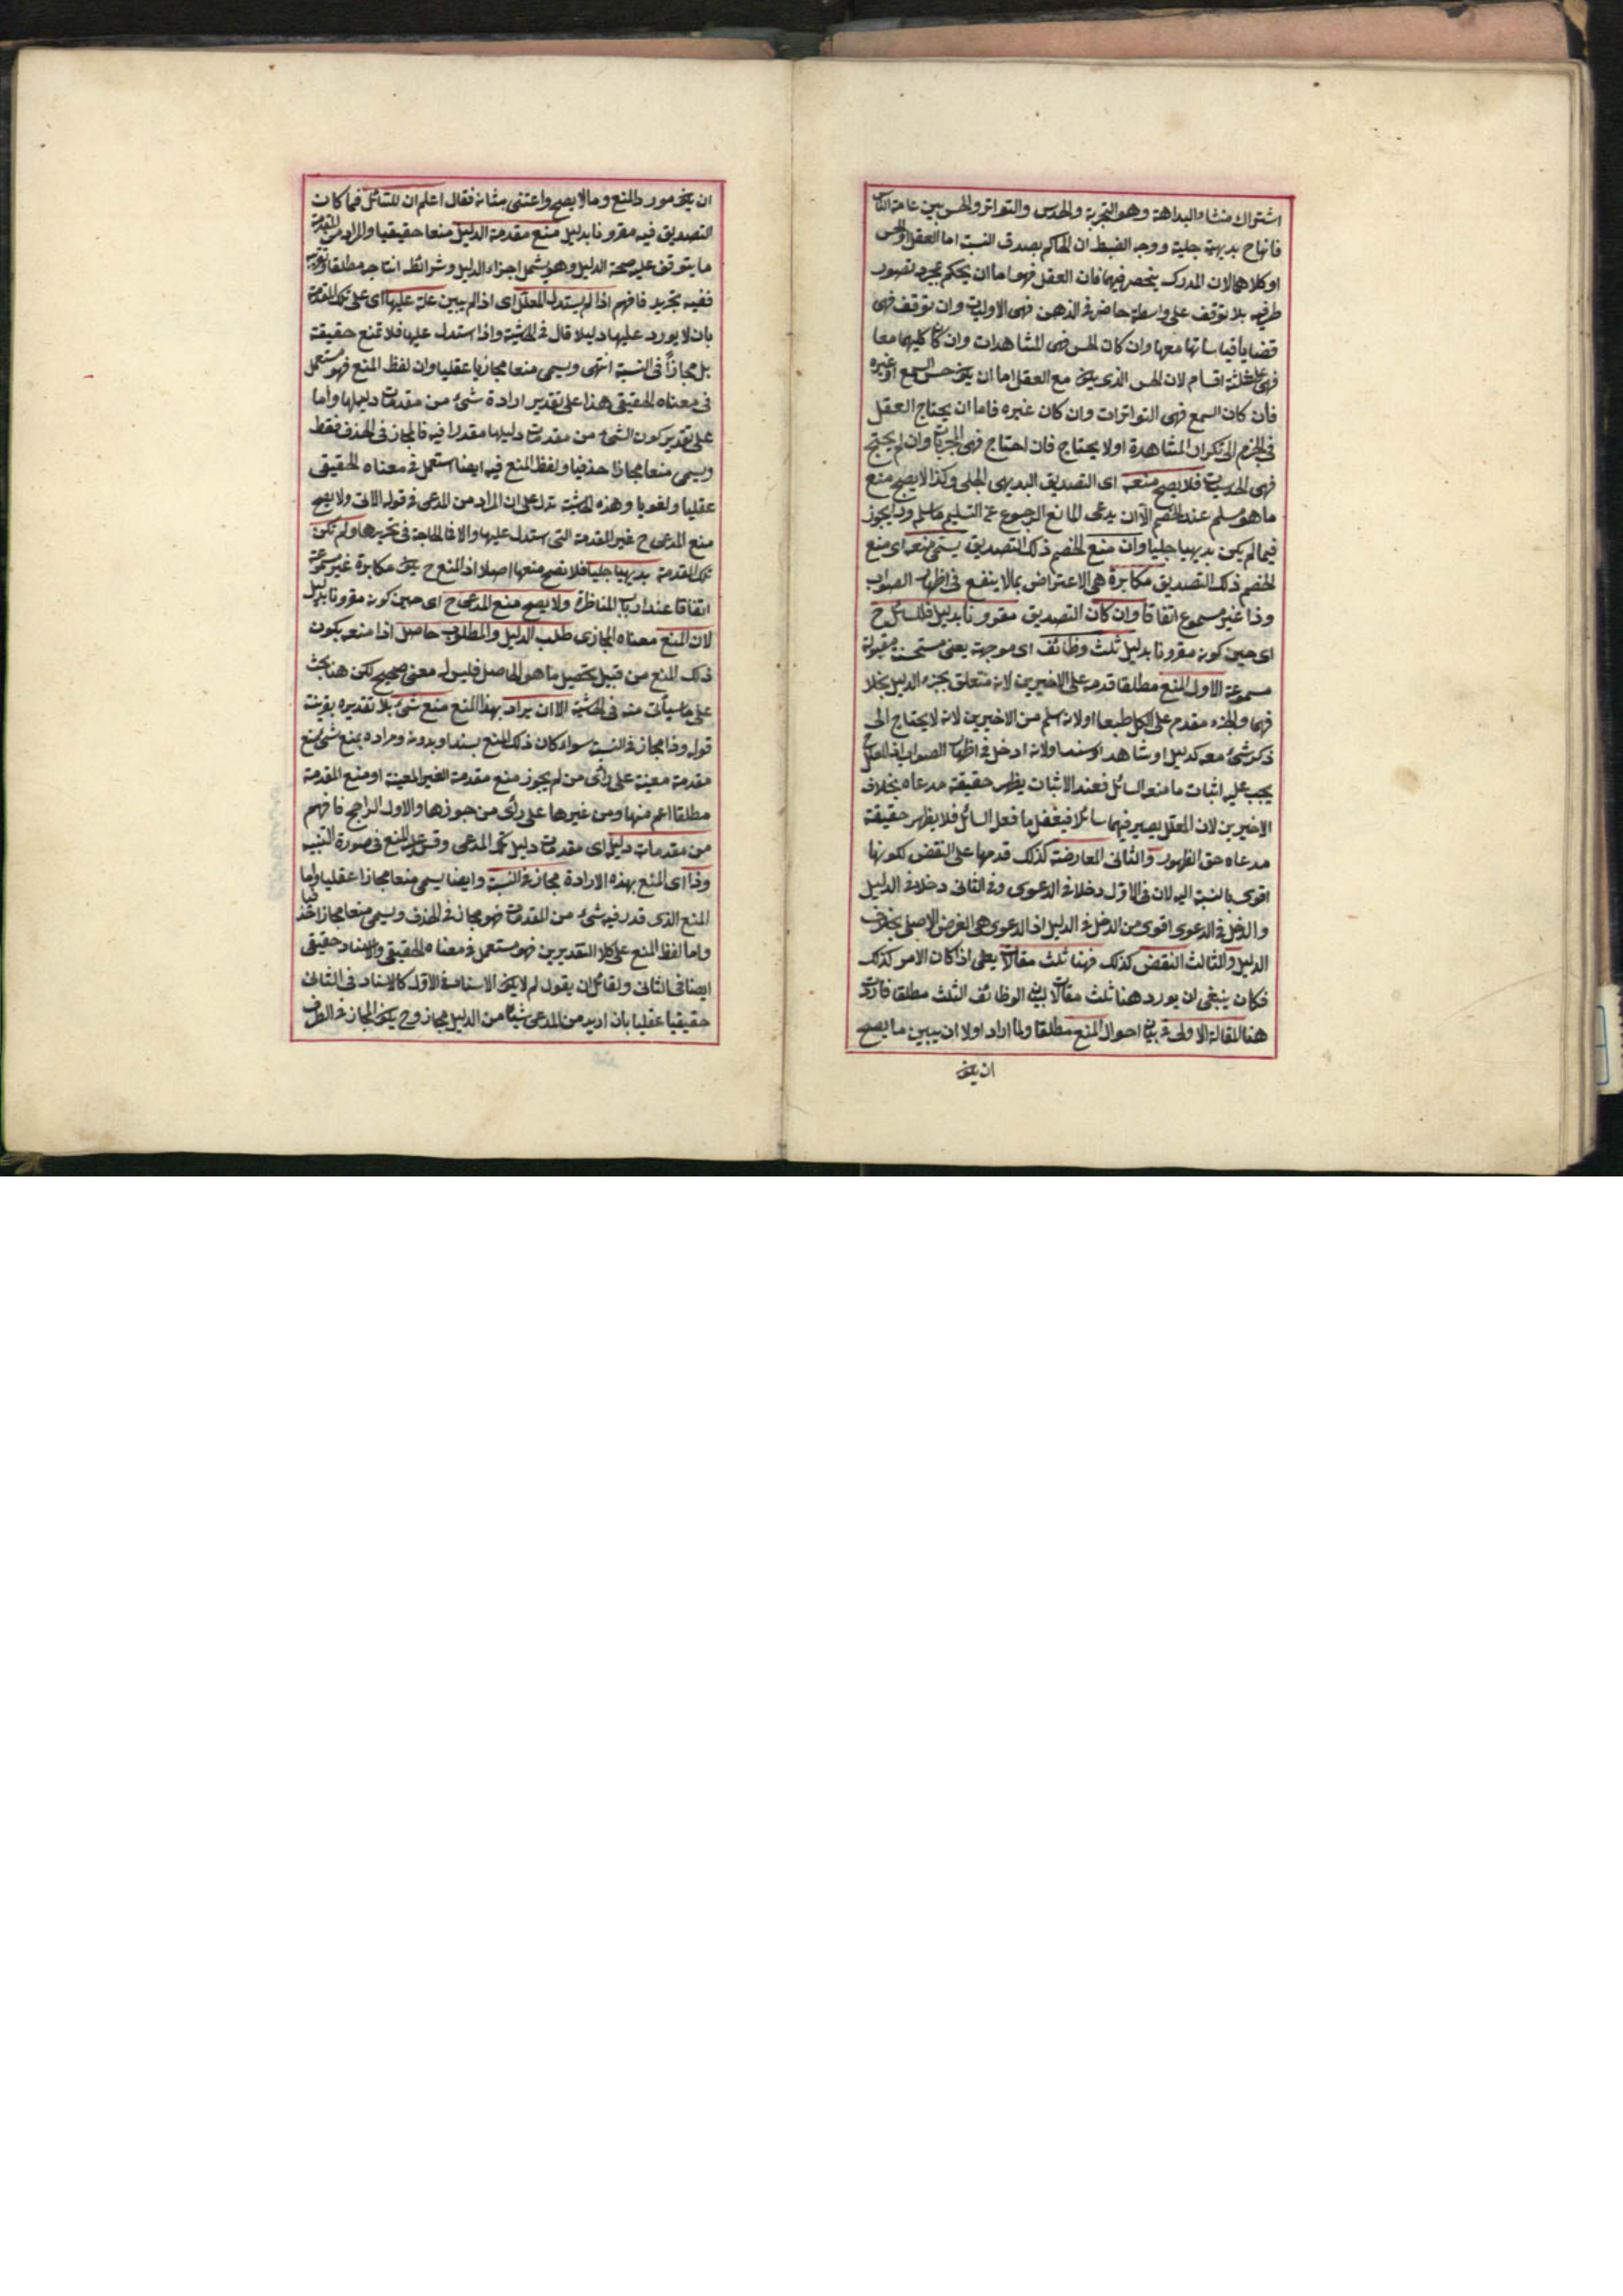 اشتراك منشاء البداهة وهو التجربة والحدس والتواتر والحس بين عامة الناس
فانها ح بديهية جلية ووجه الضبط ان الحاكم بصدق النسبة اما العقل او الحس
او كلاهما لان المدرك ينحصر فيهما فان العقل فهو اما ان يحكم بمجرد تصور
طرفيه بلا توقف على واسطة حاضر فى الذهن فهى الاوليات وان توقف فهى
قضايا قياساتها معها وان كان الحس فهى المشاهدات وان كا كليهما معا
فهى على ثلثة اقسام لان الحس الذى يكون مع العقل اما ان يكون حس السمع او غيره
فان كان السمع فهى التواترات وان كان غيره فاما ان يحتاج العقل
فى الجزم الى تكرار المشاهدة اولا يحتاج فان احتاج فهى المجربات وان لم يحتج
فهى الحدسيات فلا يصح منعه اى التصديق البديهى الجلى وكذا لا يصح منع
ما هو مسلم عند الخصم الا ان يدعى المانع الرجوع عن التسليم ما سلم وذا يجوز
فيما لم يكن بديهيا جليا وان منع الخصم ذلك التصديق يسمى منعه اى منع
الخصم ذلك التصديق مكابرة هى الاعتراض بما لا ينفع فى اظهار الصواب
وذا غير مسموع اتفاقا وان كان التصديق مقرونا بدليل فللسائل ح
اى حين كونه مقرونا بدليل ثلث وظائف اى موجهة يعنى مستحسنة مقبولة
مسموعة الاول المنع مطلقا قدمه على الاخيرين لانه متعلق بجزء الدليل بخلا
فهما والجزء مقدم على الكل طبعا اولانه اسلم من الاخيرين لانه لا يحتاج الى
ذكر شئ معه كدليل او شاهد او سند اولانه ادخل فى اظهار الصواب اذ المعلل
يجب عليه اثبات ما منعه السائل فعند الاثبات يظهر حقيقة مدعاه بخلاف
الاخيرين لان المعلل يصير فيهما سائلا فيغفل ما فعل السائل فلا يظهر حقيقة
مدعاه حق الظهور والثانى المعارضة كذلك قدمها على النقض لكونها
اقوى بالنسبة اليه لان فى الاول دخلا فى الدعوى وفى الثانى دخلا فى الدليل
والدخل فى الدعوى اقوى من الدخل فى الدليل اذ الدعوى هى الغرض الاصلى بخلاف
الدليل والثالث النقض كذلك فهنا ثلث مقالات يعنى اذا كان الامر كذلك
فكان ينبغى ان يورد هنا ثلث مقالات لبيان الوظائف الثلث مطلقا فاردت
هنا المقالة الاولى فى بيان احوال المنع مطلقا ولما اراد اولا ان يبين ما يصح
ان يكون
ان يكون مورد المنع وما لا يصح واعتنى بشانه فقال اعلم ان للسائل فيما كان
التصديق فيه مقرونا بدليل منع مقدمة الدليل منعا حقيقيا والمراد من المقدمة
ما يتوقف عليه صحة الدليل وهو يشمل اجزاء الدليل وشرائط انتاجه مطلقا
ففيه تجريد فافهم اذا لم يستدل المعلل اى اذا لم يبين علة عليها اى على تلك المقدمة
بان لا يورد عليها دليلا قال فى الحاشية واذا استدل عليها فلا تمنع حقيقة
بل مجازاً فى النسبة انتهى ويسمى منعا مجازيا عقليا وان لفظ المنع فهو مستعمل
فى معناه الحقيقى هذا على تقدير ارادة شئ من مقدمات دليلها واما
على تقدير كون الشئ من مقدمات دليلها مقدرا فيه فالمجاز فى الحذف فقط
ويسمى منعا مجازا حذفيا ولفظ المنع فيه ايضا استعمل فى معناه الحقيقى
عقليا ولغويا وهذه الحاشية تدل على ان المراد من المدعى فى قوله الاتى ولا يصح
منع المدعى ح غير المقدمة التى استدل عليها والا فالحاجة فى تحريرها ولم تكن
تلك المقدمة بديهيا جليا فلا تصح منعها اصلا اذ المنع ح يكون مكابرة غير مسموعة
اتفاقا عند ارباب المناظرة ولا يصح منع المدعى ح اى حين كونه مقرونا بدليل
لان المنع معناه المجازى طلب الدليل والمطلوب حاصل اذا منعه يكون
ذلك المنع من قبيل تحصيل ما هو الحاصل فليس له معنى صحيح لكن هنا بحث
على ما سيأتى منه فى الحاشية الا ان يراد بهذا المنع منع شئ بلا تقديره بقرينة
قوله وذا مجاز فى النسبة سواء كان ذلك المنع بسند او بدونه ومراده بمنع شئ منع
مقدمة معينة على رأى من لم يجوز منع مقدمة الغير المعينة او منع المقدمة
مطلقا اعم منها ومن غيرها على رأى من جوزها والاول الراجح فافهم
من مقدمات دليله اى مقدمات دليل تلك المدعى وقس عليه المنع فى صورة التنبيه
وذا اى المنع بهذه الارادة مجاز فى النسبة وايضا يسمى منعا مجازا عقليا واما
المنع الذى قدر فيه شئ من المقدمات فهو مجاز فى الحذف ويسمى منعا مجازا حذفيا
واما لفظ المنع على كلا التقديرين فهو مستعمل فى معناه الحقيقى والاسناد حقيقى
ايضا فى الثانى ولقائل ان يقول لم لا يكون الاسناد فى الاول كالاسناد فى الثانى
حقيقيا عقليا بان اريد من المدعى شيئا من الدليل مجاز وح يكون المجاز فى الطرف